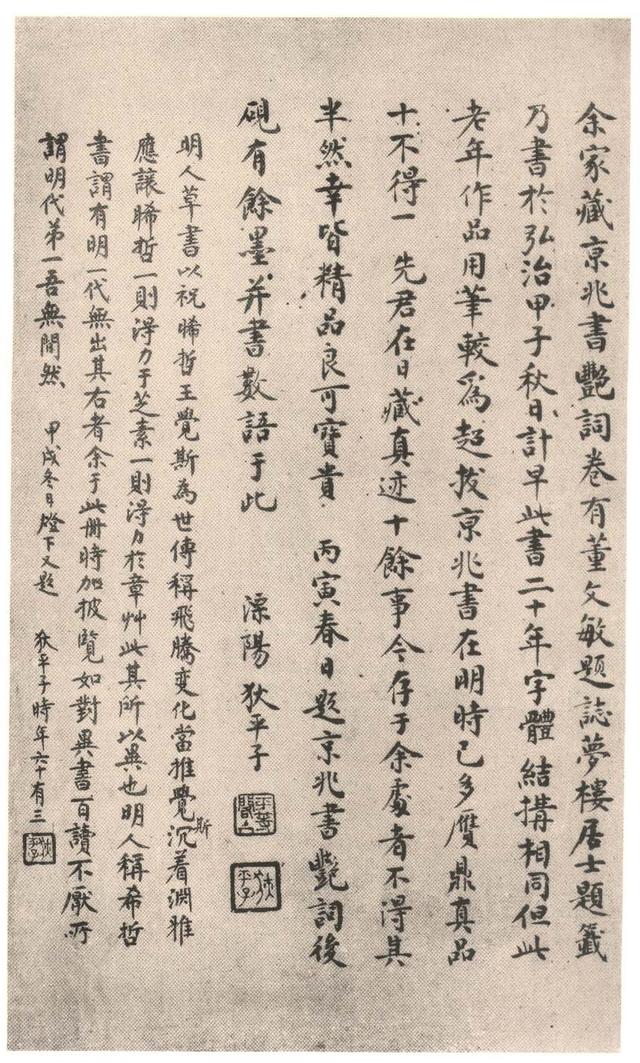 余家藏京兆書艷詞卷有董文敏題誌夢樓居士題籤
乃書於弘治甲子秋日計早此書二十年字體結搆相同但此
老年作品用筆較為超拔京兆書在明時已多贋鼎真品
十不得一 先君在日藏真迹十餘事今存于余處者不得其
半然幸皆精品良可寶貴 丙寅春日題京兆書艷詞後
硯有餘墨并書數語于此 溧陽狄平子
明人草書以祝晞哲王覺斯為世傳稱飛騰变化當推覺斯沉着淵雅
應讓晞哲一則淂力于芝素一則淂力於章艸此其所以異也明人稱希哲
書謂有明一代無出其右者余于此册時加披覽如對異書百讀不厭所
謂明代第一吾無閒然 甲戌冬日燈下又題 狄平子時年六十有三
平等閣主
狄平子